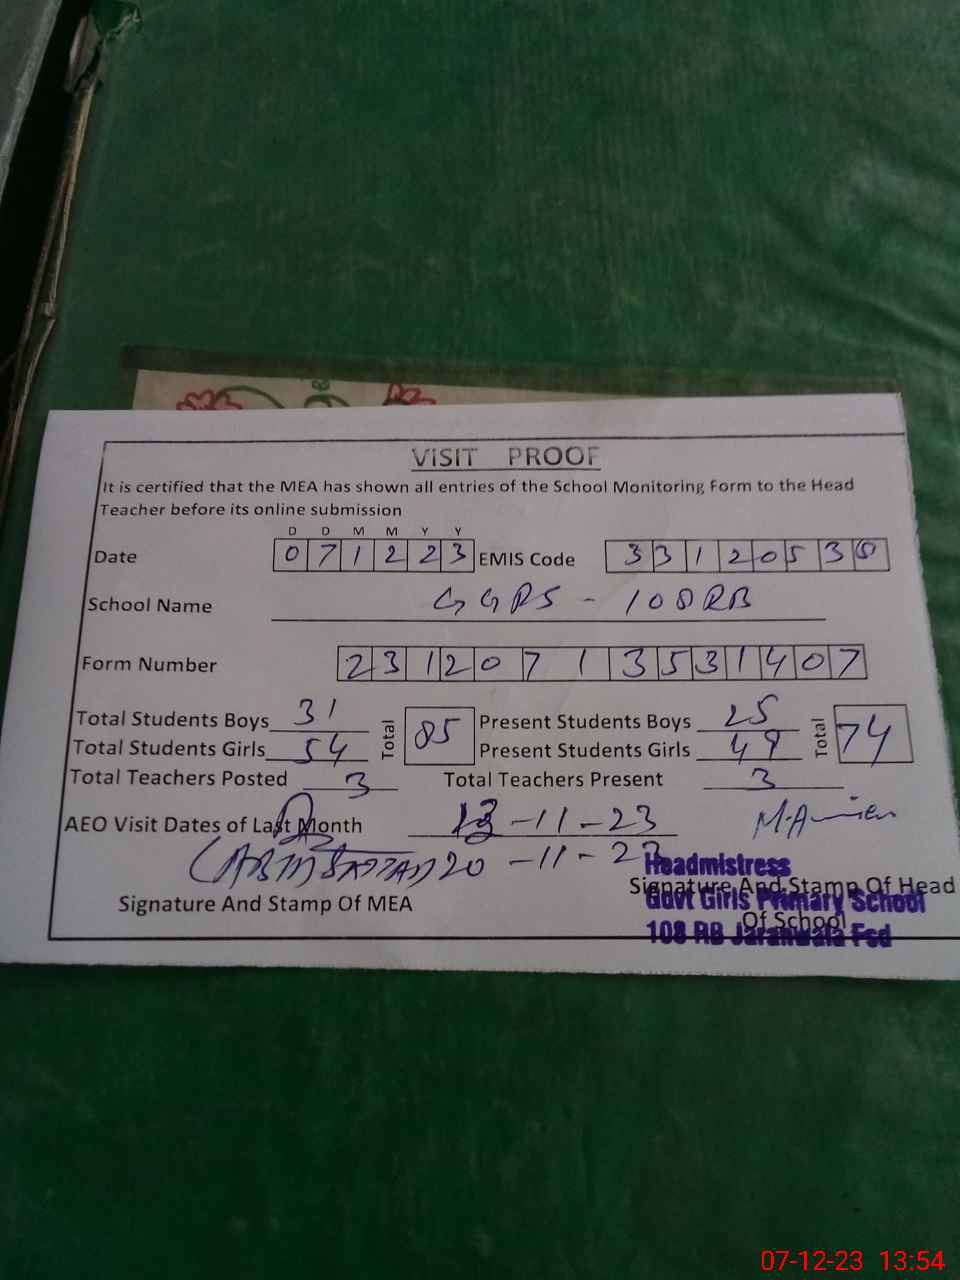 VISIT PROOF
It is certified that the MEA has shown all entries of the School Monitoring Form to the Head
Teacher before its online submission
D D M M Y Y
Date 0 7 1 2 2 3 EMIS Code 3 3 1 2 0 5 3 8
School Name GGPS - 108RB
Form Number 2 3 1 2 0 7 1 3 5 3 1 4 0 7
Total Students Boys 31 Total 85 Present Students Boys 25 Total 74
Total Students Girls 54 Present Students Girls 49
Total Teachers Posted 3 Total Teachers Present 3
AEO Visit Dates of Last Month 13-11-23
20-11-23
Headmistress
Signature And Stamp Of MEA Signature And Stamp Of Head
Govt Girls Primary School
Of School
108 RB Jaranwala Fsd
07-12-23 13:54